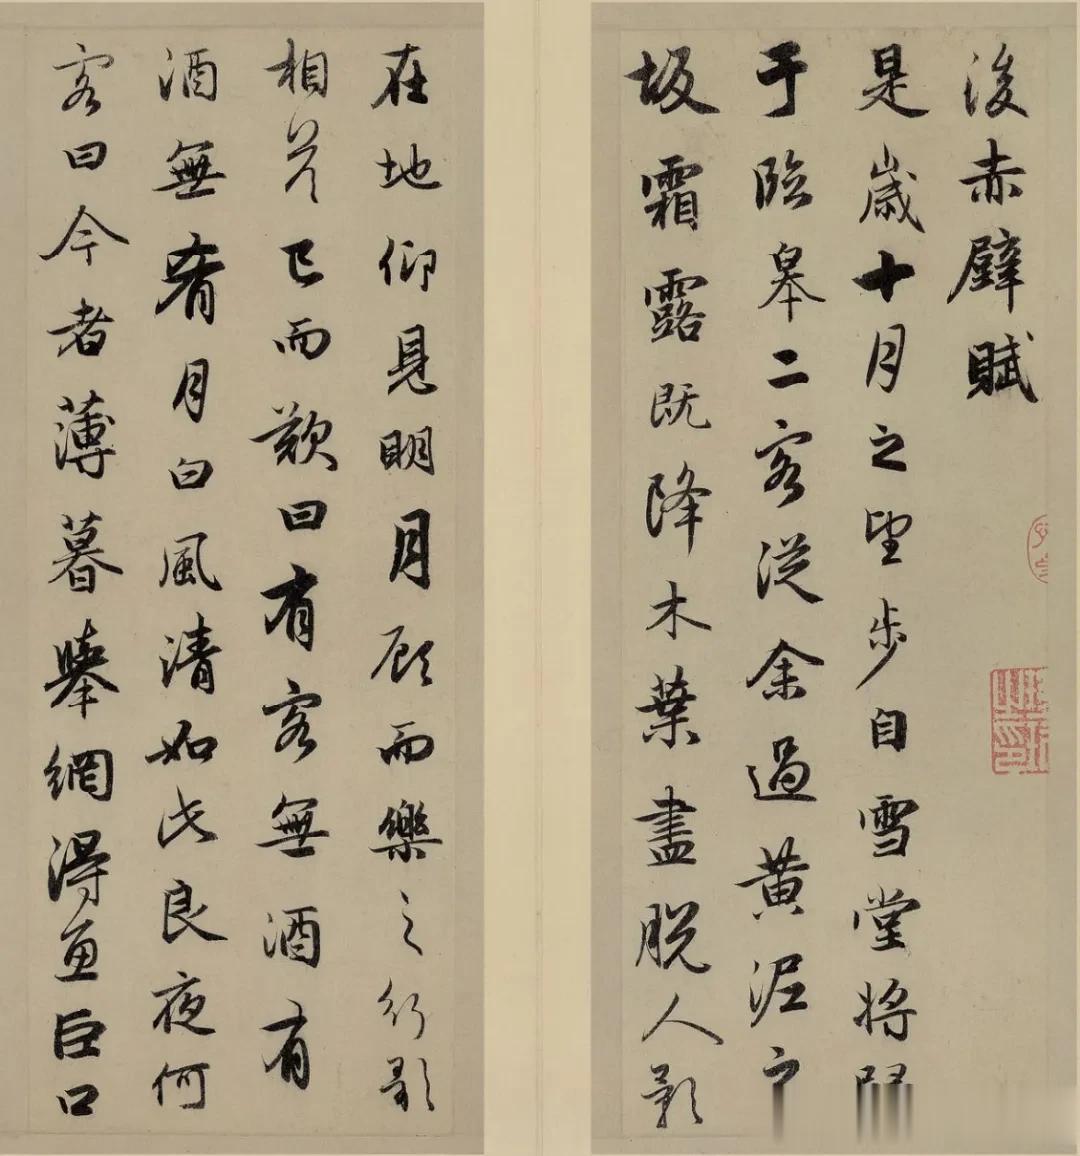 後赤壁賦
是歲十月之望步自雪堂將
于臨皋二客從余過黃泥之
坂霜露既降木葉盡脫人影
在地仰見明月顧而樂之行歌
相答已而歎曰有客無酒有
酒無肴月白風清如此良夜何
客曰今者薄暮舉網得魚巨口